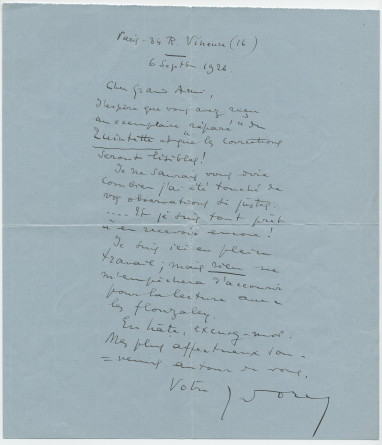 Paris - 34 R. Vineuse (16)
6 Septbre 192
Cher Grand Ami,
J'espère que vous avez reçu
un exemplaire "réparé" du
Quintette et que les corrections
seront lisibles!
Je ne saurais vous dire
combien j'ai été touché de
vos observations si justes.
.... Et je suis tout prêt
à en recevoir encore!
Je suis ici en plein
travail; mais rien ne
m'empêchera d'accourir
pour la lecture avec
les Flonzaley.
En hâte, excusez-moi.
Mes plus affectueux sou-
=venirs autour de vous.
Votre